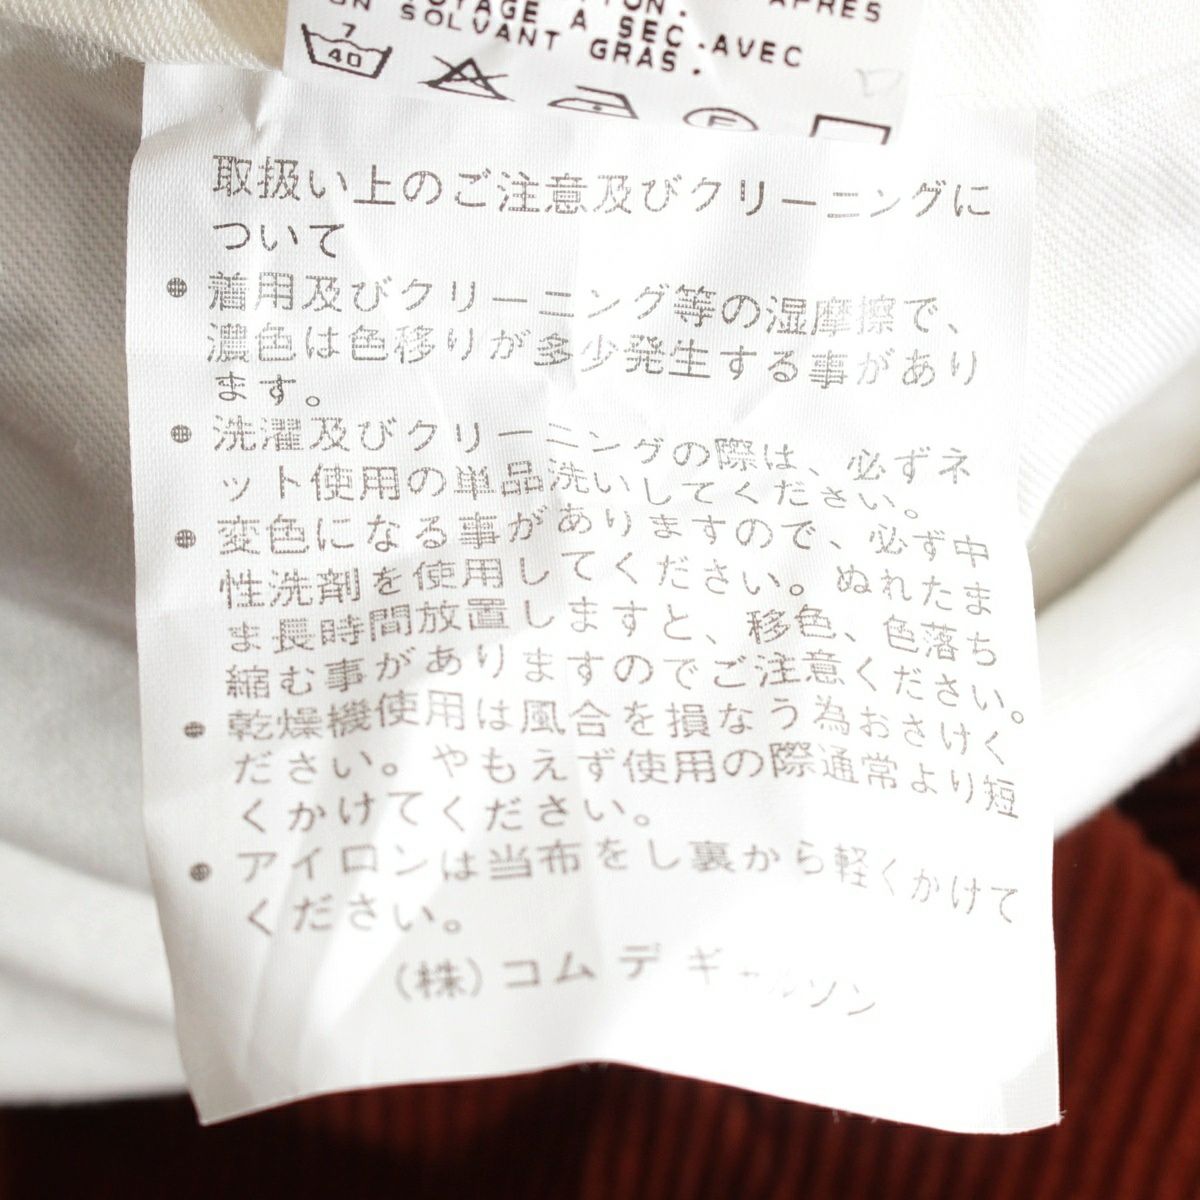 APRÈS
A SEC.AVEC
UN SOLVANT GRAS.
7
40
F
取扱い上のご注意及びクリーニングに
ついて
● 着用及びクリーニング等の湿摩擦で、
濃色は色移りが多少発生する事があり
ます。
● 洗濯及びクリーニングの際は、必ずネ
ット使用の単品洗いしてください。
● 変色になる事がありますので、必ず中
性洗剤を使用してください。ぬれたま
ま長時間放置しますと、移色、色落ち
縮む事がありますのでご注意ください。
● 乾燥機使用は風合を損なう為おさけく
ださい。やもえず使用の際通常より短
くかけてください。
● アイロンは当布をし裏から軽くかけて
ください。
(株)コム デ ギャルソン